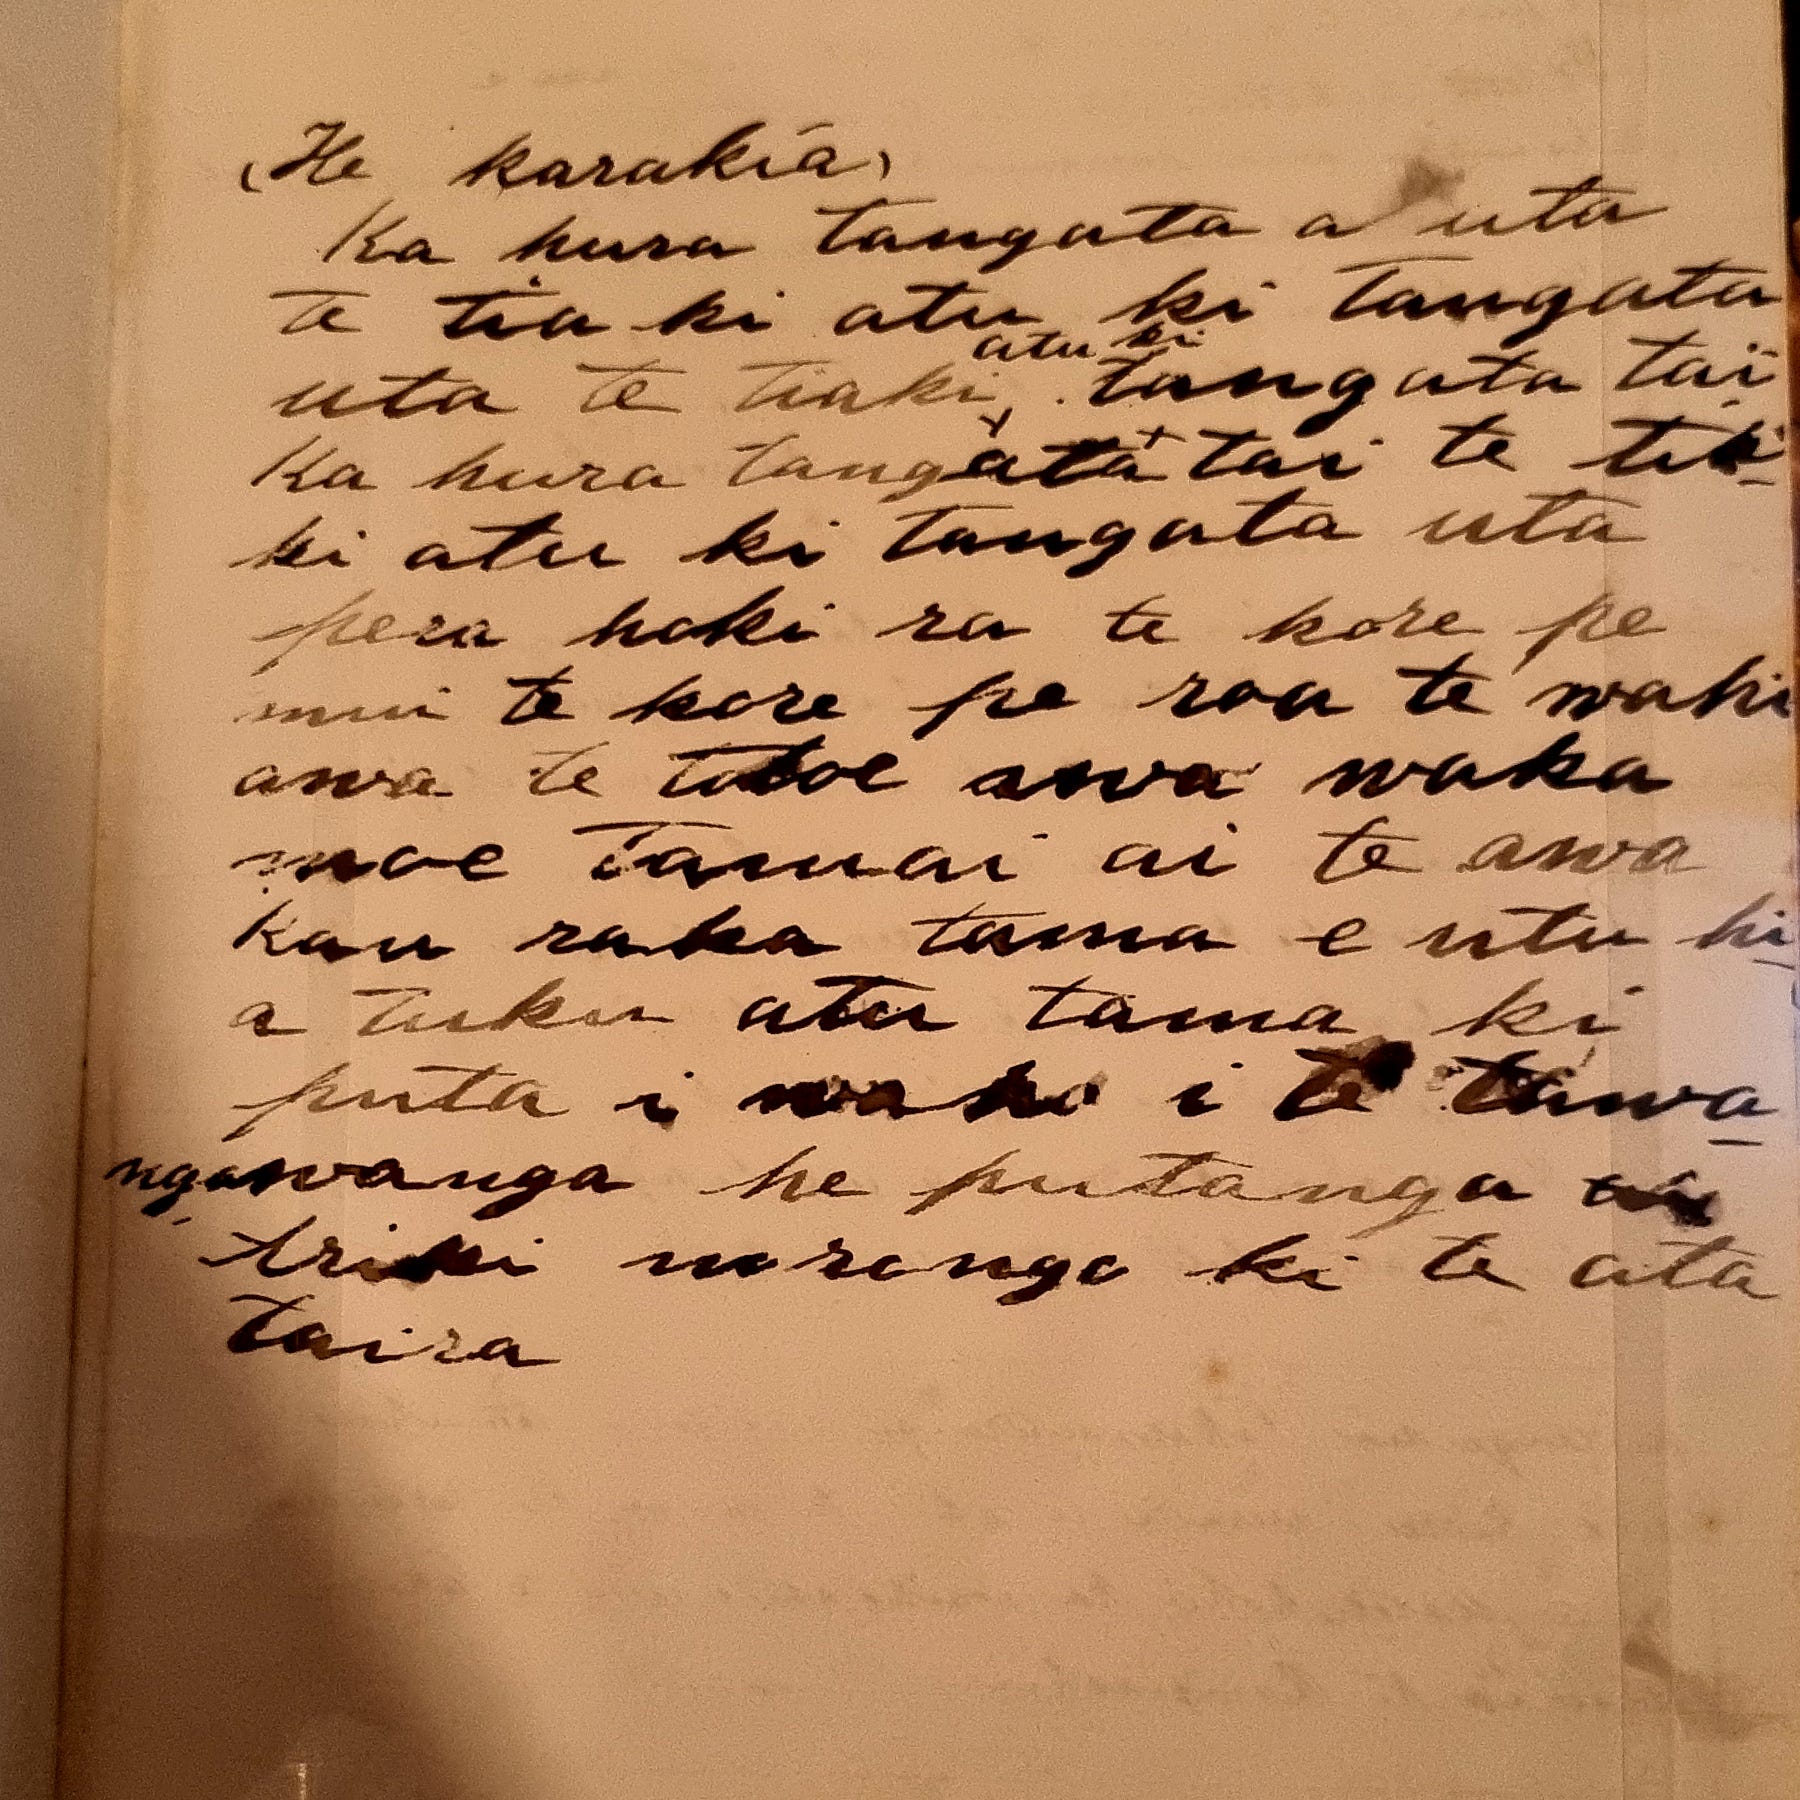 (He karakia)
Ka hura tangata a uta
te tia ki atu ki tangata
uta te tiaki atu ki tangata tai
Ka hura tangata tai te
ki atu ki tangata uta
pera hoki ra te kore pe
nui te kore pe roa te wahi
awa te totoe awa waka
moe tamai ai te awa
Kau raka tama e utu hi-
a tuku atu tama ki
puta i waho i te tawa-
ngawanga he putanga
ariki no rongo ki te ata
taira